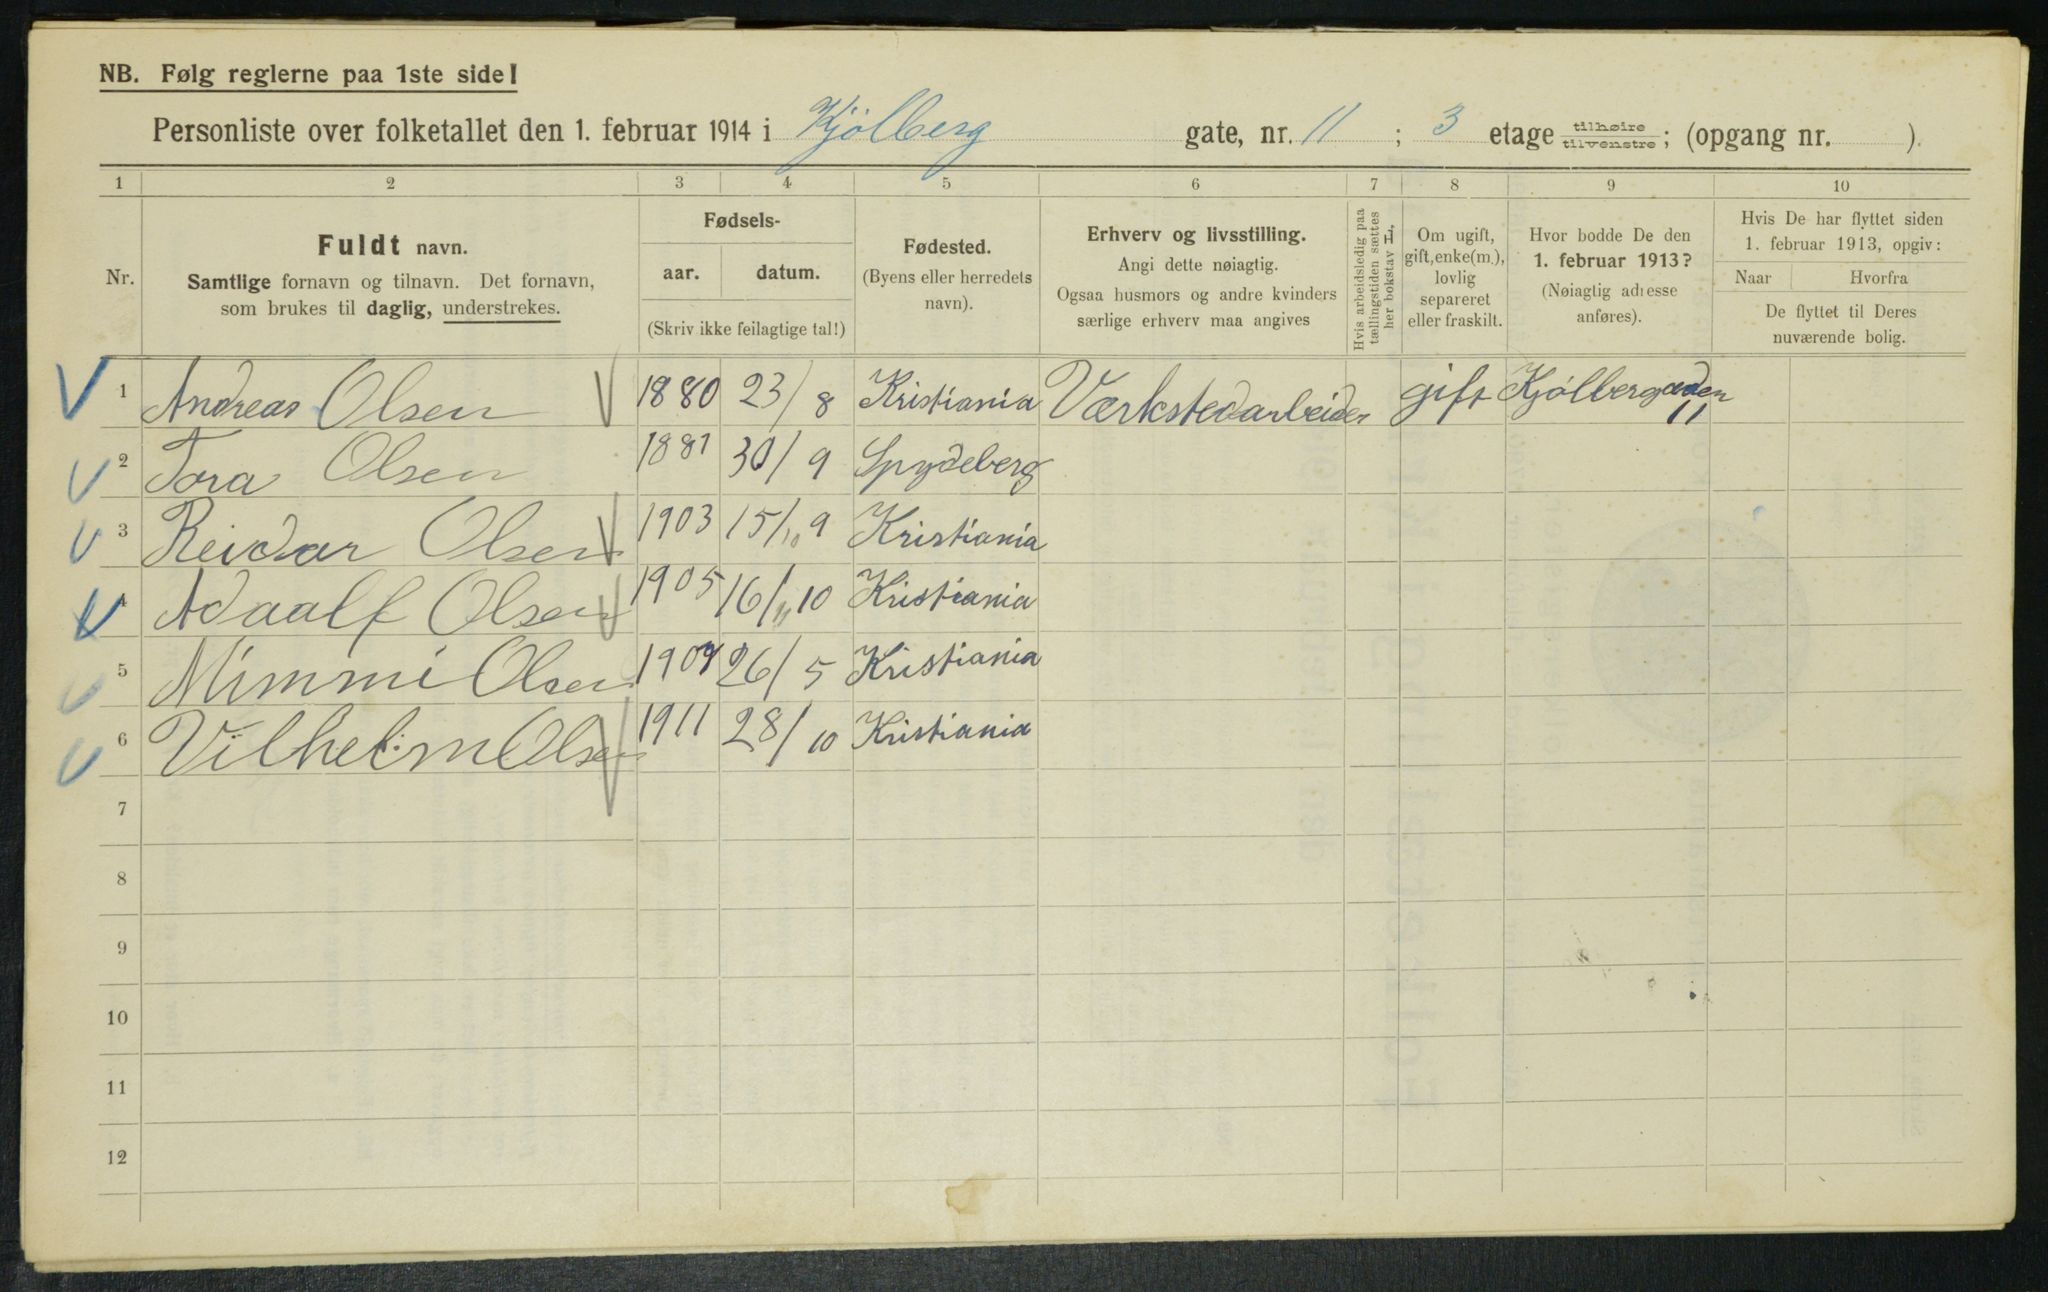 NB. Følg reglerne paa 1ste side!
Personliste over folketallet den 1. februar 1914 i Kjølberg gate, nr. 11 ; 3 etage tilhøire tilvenstre ; (opgang nr. ).
1 2 3 4 5 6 7 8 9 10
Nr.
Fuldt navn.
Samtlige fornavn og tilnavn. Det fornavn,
som brukes til daglig, understrekes.
Fødsels-
aar. datum.
(Skriv ikke feilagtige tal!)
Fødested.
(Byens eller herredets
navn).
Erhverv og livsstilling.
Angi dette nøiagtig.
Ogsaa husmors og andre kvinders
særlige erhverv maa angives
Hvis arbeidsledig paa
tællingstiden sættes
her bokstav L,
Om ugift,
gift, enke(m.),
lovlig
separeret
eller fraskilt.
Hvor bodde De den
1. februar 1913?
(Nøiagtig adresse
anføres).
Hvis De har flyttet siden
1. februar 1913, opgiv:
Naar Hvorfra
De flyttet til Deres
nuværende bolig.
1 Andreas Olsen 1880 23/8 Kristiania Værkstedarbeider gift Kjølbergaden 11
2 Tora Olsen 1881 30/9 Spydeberg
3 Reidar Olsen 1903 15/10 9 Kristiania
4 Adaalf Olsen 1905 16/11 10 Kristiania
5 Mimmi Olsen 1909 26/5 Kristiania
6 Vilhelm Olsen 1911 28/10 Kristiania
7
8
9
10
11
12